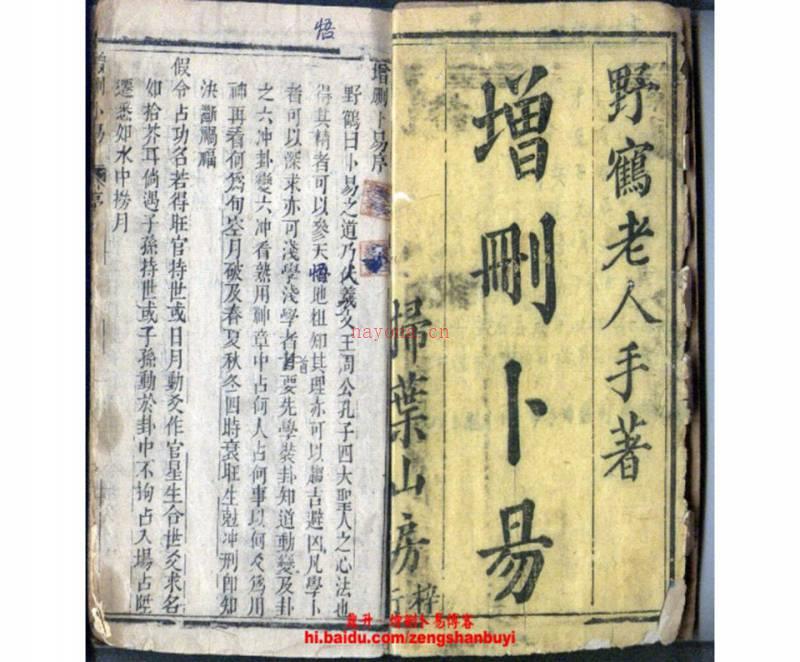 野鶴老人手著
增刪卜易
掃葉山房
梓行
增刪卜易序
野鶴曰卜易之道乃伏羲文王周公孔子四大聖人之心法也
得其精者可以參天悟地粗知其理亦可以趨吉避凶凡學卜
者可以深求亦可淺學淺學者首要先學裝卦知道動變及卦
之六冲卦變六冲看熟用神章中占何人占何事以何爻爲用
神再看何爲旬空月破及春夏秋冬四時衰旺生剋冲刑卽知
決斷禍福
假令占功名若得旺官持世或日月動爻作官星生合世爻求名
如拾芥耳倘遇子孫持世或子孫動於卦中不拘占入場占陞
遷悉如水中撈月
增刪卜易
序
悟
nayona.cn
hi.baidu.com/zengshanbuyi